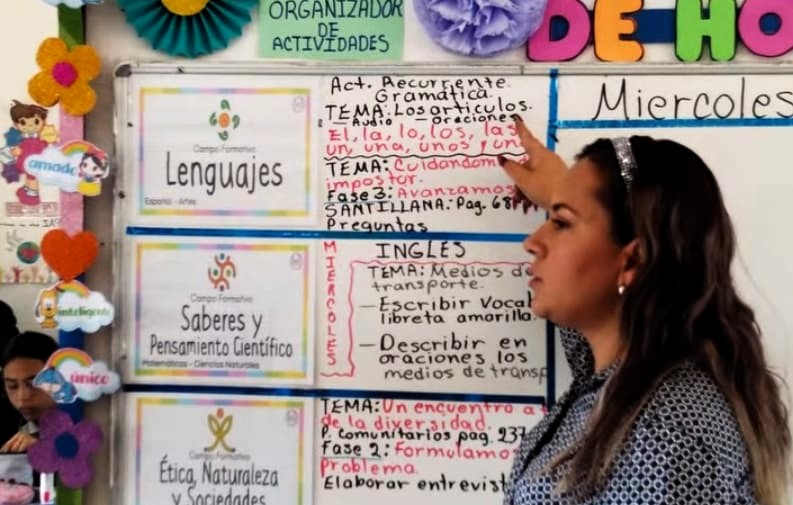 ORGANIZADOR
DE
ACTIVIDADES
DE HO
Miercoles
amado
inteligente
único
Campo Formativo
Lenguajes
Español - Artes
Act. Recurrente.
Gramática.
TEMA: Los artículos.
- Audio - Oraciones
El, la, lo, los, las
un, una, unos y un
TEMA: Cuidandom
impostor.
Fase 3: Avanzamos
SANTILLANA: Pag. 68
Preguntas
Campo Formativo
Saberes y
Pensamiento Científico
Matemáticas - Ciencias Naturales
MIERCOLES
INGLES
TEMA: Medios de
transporte.
- Escribir Vocab
libreta amarilla
- Describir en
oraciones los
medios de transp
Campo Formativo
Ética, Naturaleza
y Sociedades
TEMA: Un encuentro a
de la diversidad.
P. Comunitarios pag. 237
Fase 2: Formulamos
Problema.
Elaborar entrevist